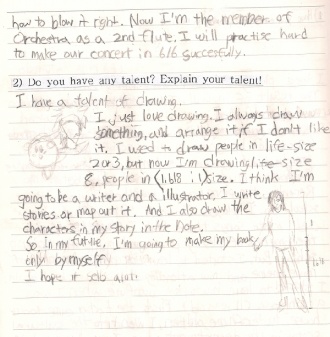 how to blow it right. Now I'm the member of
Orchestra as a 2nd flute. I will practise hard
to make our concert in 6/6 succesfully.
2) Do you have any talent? Explain your talent!
I have a talent of drawing.
I just love drawing. I always draw
something, and arrange it if I don't like
it. I used to draw people in life-size
2 or 3, but now I'm drawing life-size
8, people in (1.618 : 1) size. I think I'm
going to be a writer and a illustrator. I write
stories or map out it. And I also draw the
characters in my story in the note.
So, In my future, I'm going to make my book
only by myself.
I hope it sold a lot!